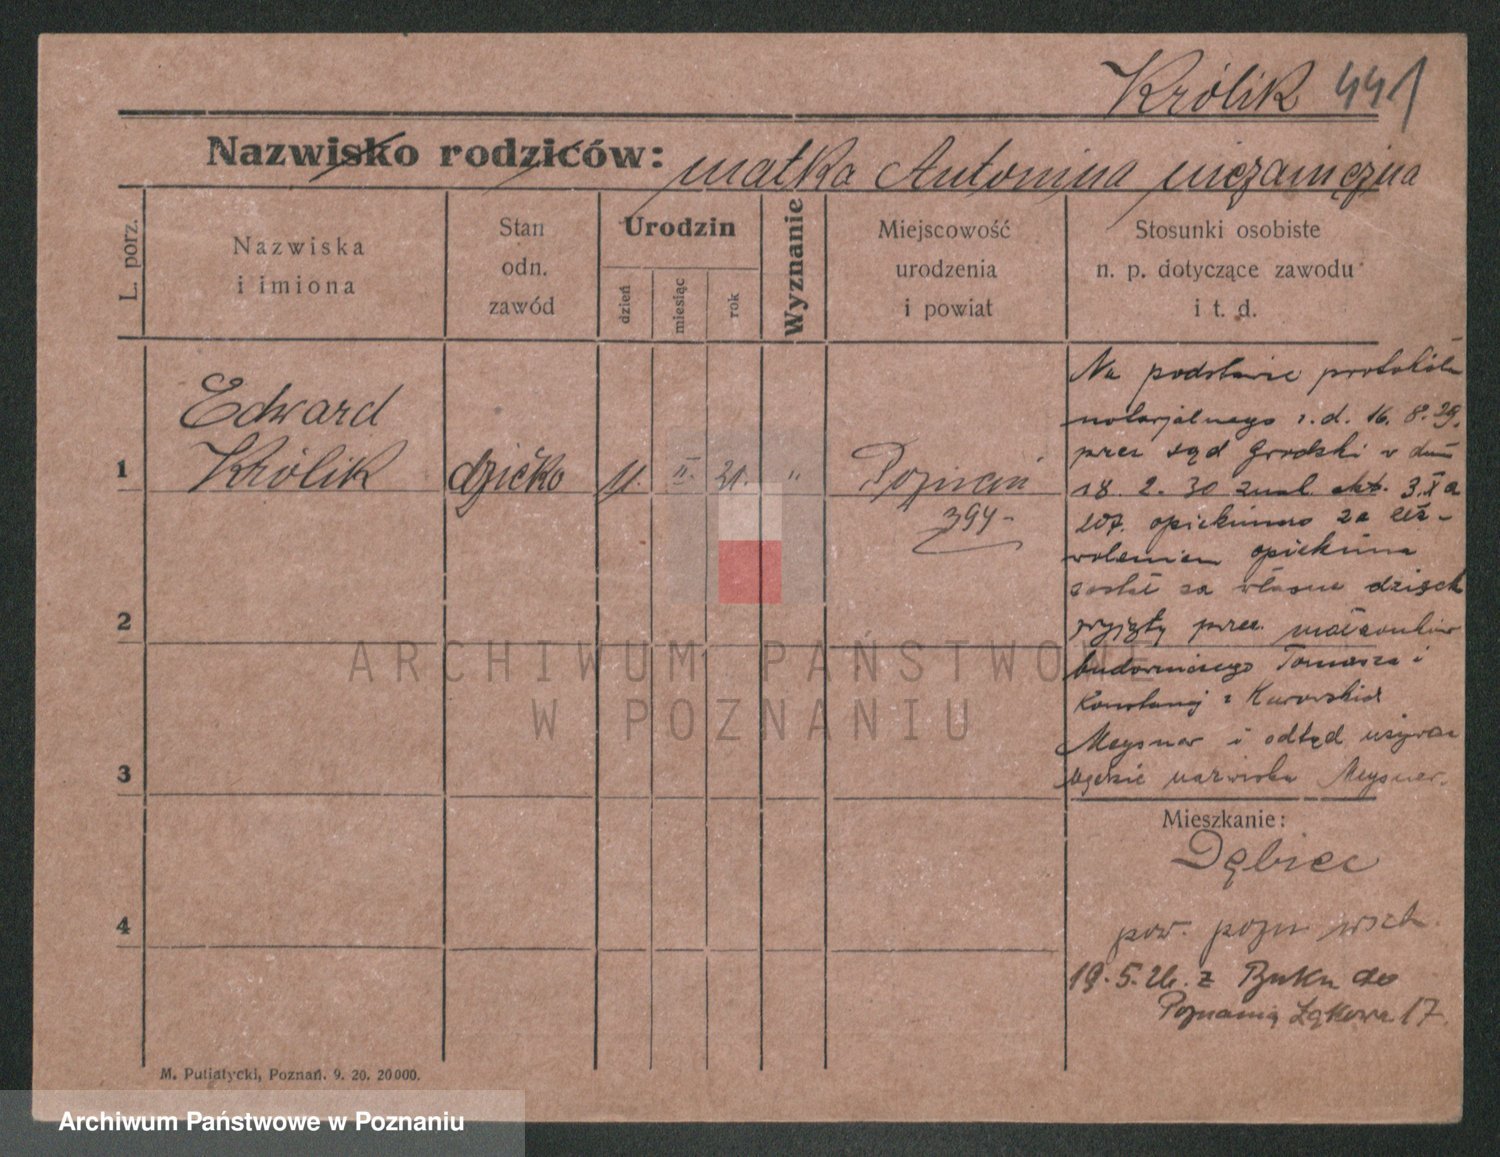 Królik 441
Nazwisko rodziców: matka Antonina niezamężna
L. porz.
Nazwiska
i imiona
Stan
odn.
zawód
Urodzin
dzień
miesiąc
rok
Wyznanie
Miejscowość
urodzenia
i powiat
Stosunki osobiste
n. p. dotyczące zawodu
i t. d.
1
Edward
Królik
dziecko
11.
II.
21.
"
Poznań
394-
Na podstawie protokółu
notarjalnego z. d. 16. 8. 29.
przez sąd grodzki w dniu
18. 2. 30 akt. 3. X a
207. za
woleniem opiekuna
został za własne dziecko
przyjęty przez małżonków
budowniczego Tomasza i
Konstancji z Kurowskich
Meysner i odtąd używać
będzie nazwiska Meysner.
2
3
4
Mieszkanie:
Dębiec
pow. pozn. wsch.
19. 5. 26. z Buku do
Poznania Łąkowa 17.
M. Putiatycki, Poznań. 9. 20. 20000.
ARCHIWUM PAŃSTWOWE
W POZNANIU
Archiwum Państwowe w Poznaniu